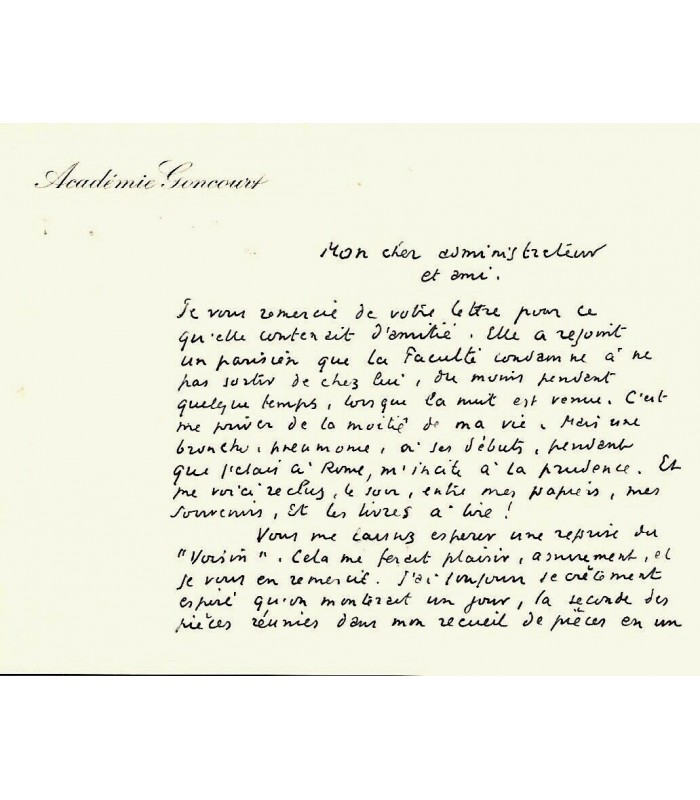 Académie Goncourt
Mon cher administrateur
et ami.
Je vous remercie de votre lettre pour ce
qu'elle contenait d'amitié. Elle a rejoint
un parisien que la Faculté condamne à ne
pas sortir de chez lui, du moins pendant
quelque temps, lorsque la nuit est venue. C'est
me priver de la moitié de ma vie. Mais une
broncho-pneumonie, à ses débuts, pendant
que j'étais à Rome, m'incite à la prudence. Et
me voici reclus, le soir, entre mes papiers, mes
souvenirs, et les livres à lire !
Vous me laissez espérer une reprise du
"Voisin". Cela me ferait plaisir, assurément, et
je vous en remercie. J'ai toujours secrètement
espéré qu'on monterait un jour, la seconde des
pièces réunies dans mon recueil de pièces en un